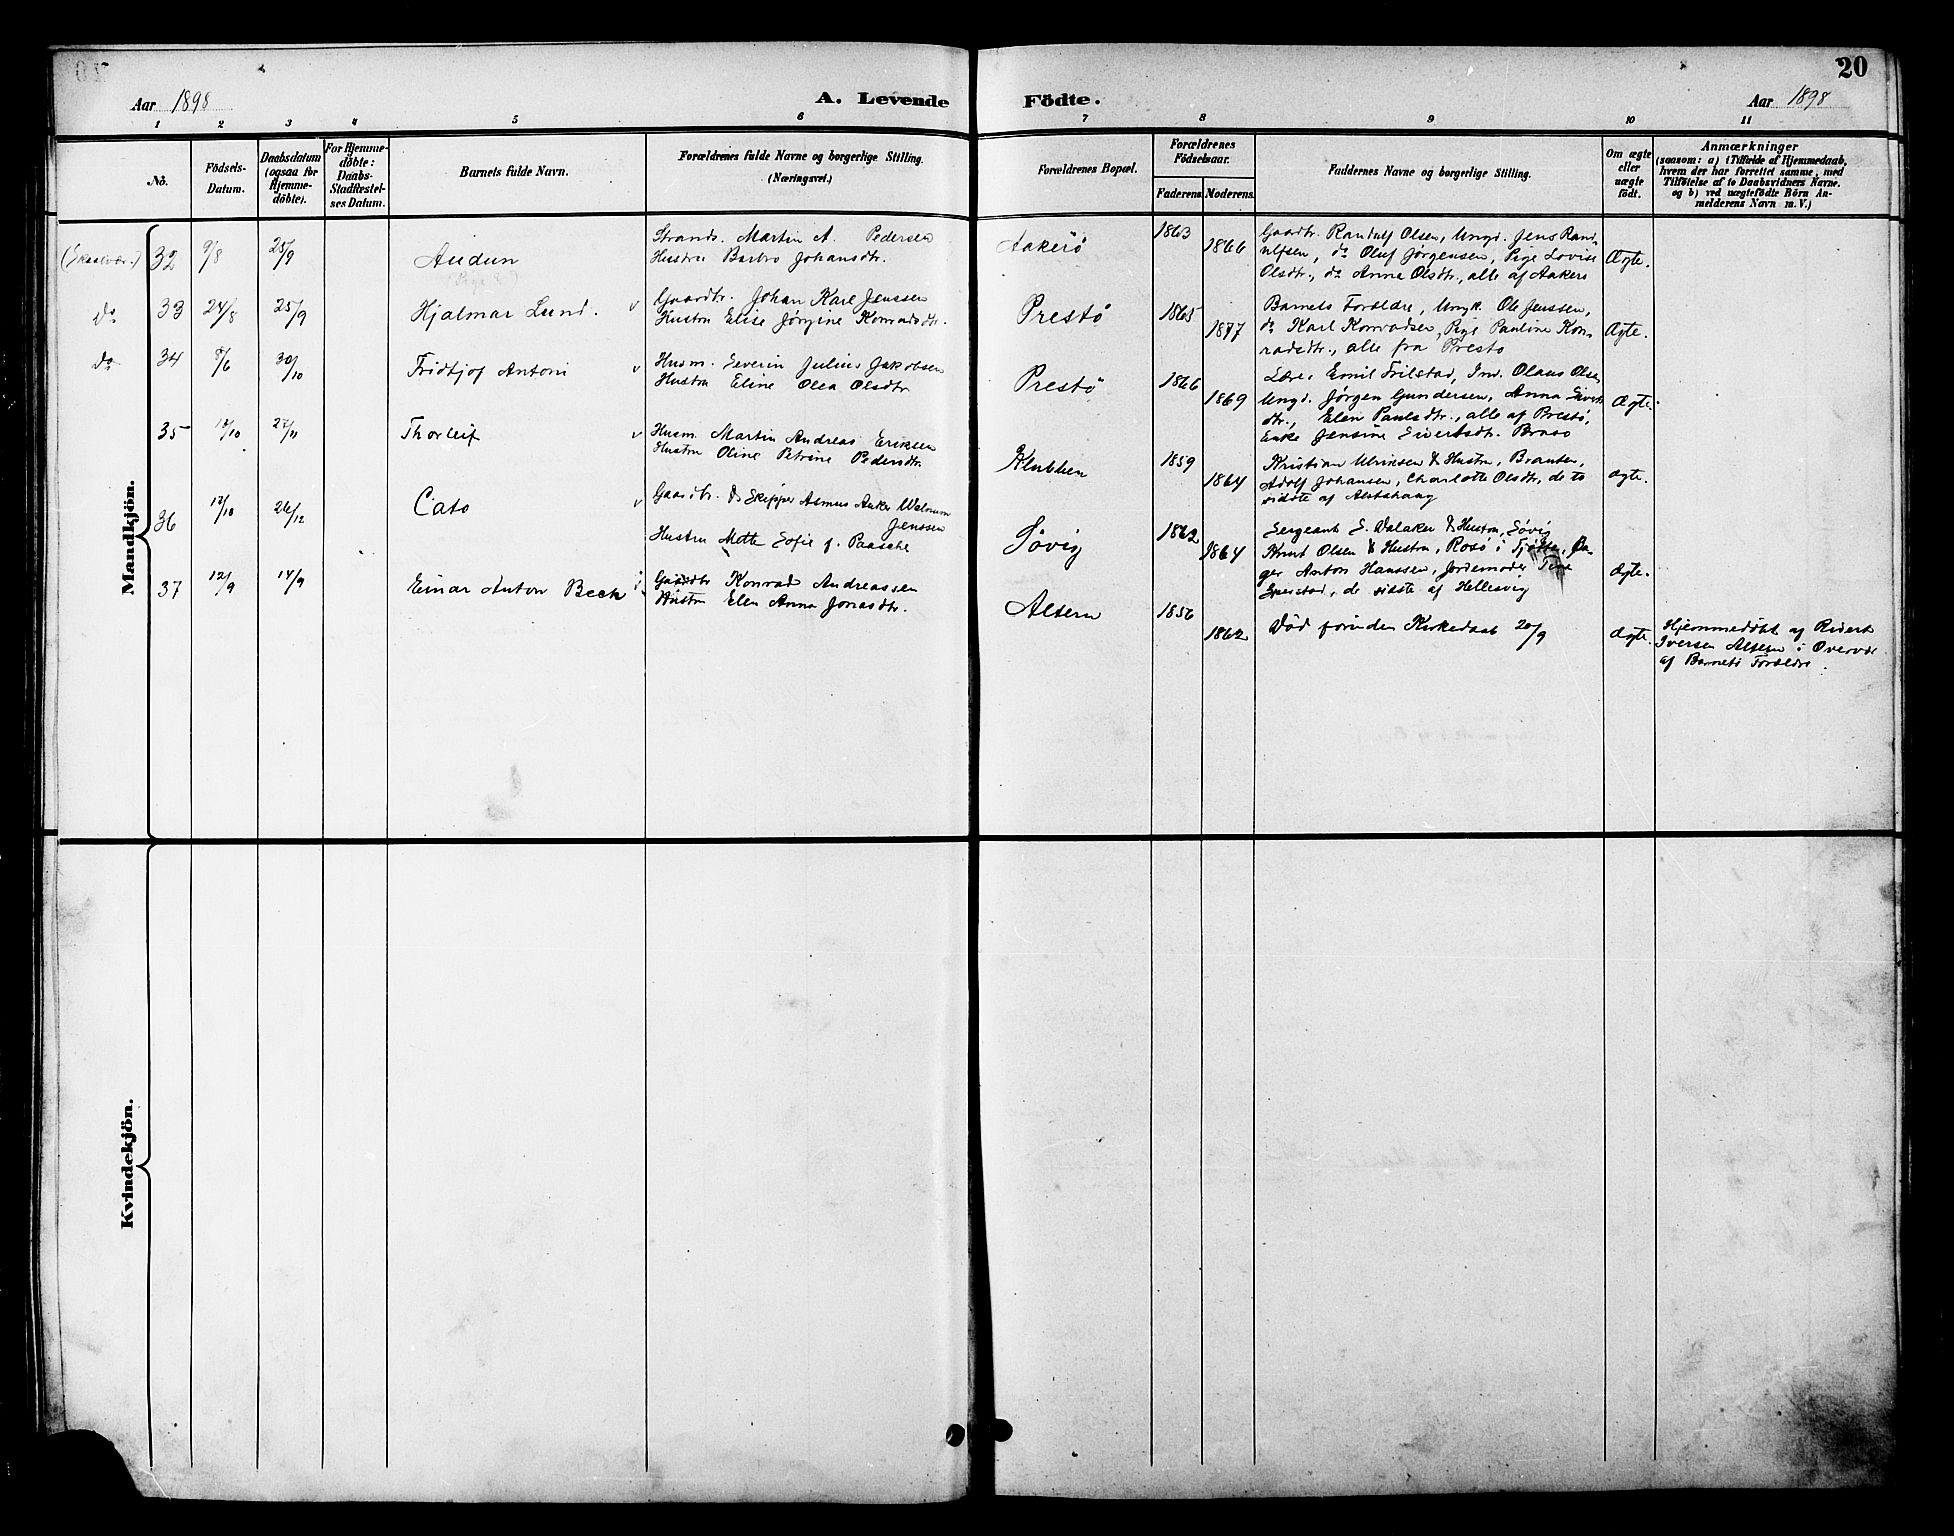 20
Aar 1898
A. Levende Födte.
Aar 1898
1 2 3 4 5 6 7 8 9 10 11
No.
Födsels-Datum.
Daabsdatum (ogsaa for Hjemme-döbte).
For Hjemme-döbte: Daabs-Stadfæstel-ses Datum.
Barnets fulde Navn.
Forældrenes fulde Navne og borgerlige Stilling.
(Næringsvei.)
Forældrenes Bopæl.
Forældrenes Födselsaar.
Faderens. Moderens.
Faddernes Navne og borgerlige Stilling.
Om ægte eller uægte födt.
Anmærkninger
(saasom: a) i Tilfælde af Hjemmedaab,
hvem der har forrettet samme, med
Tilföielse af to Daabsvidners Navne.
og b) ved uægtefödte Börn An-
melderens Navn m. V.)
Mandkjön.
(Skaalvær.) 32 9/8 25/9 Audun
Strands. Martin A. Pedersen
Hustru Barbro Johansdtr.
Aakerö 1863 1866
Gaardbr. Randulf Olsen, Ungk. Jens Rand-
ulfsen, do Oluf Jørgensen, Pige Lovise
Olsdtr., do Anna Olsdtr., alle af Aakerö
Ægte.
do 33 24/8 25/9 Hjalmar Lund. v
Gaardbr. Johan Karl Jenssen
Hustru Elise Jørgine Konradsdtr.
Prestö 1865 1877
Barnets Forældre, Ungk. Ole Jenssen,
do Karl Konradsen, Pige Pauline Kon-
radsdtr., alle fra Prestö
Ægte.
do 34 8/6 30/10 Fridtjof Antoni v
Husm. Severin Julius Jakobsen
Hustru Eline Olea Olsdtr
Prestö 1866 1869
Lærer Emil Frilstad, Ind. Olaus Olsen
Ungk. Jørgen Gundersen, Anna Siverts
dtr., Elen Paulsdtr., alle af Prestö,
Enke Jensine Sivertsdtr. Brasö
Ægte.
35 12/10 27/11 Thorleif v
Husm. Martin Andreas Eriksen
Hustru Oline Petrine Pedersdtr.
Klubben 1859 1864
Kristian Ulriksen & Hustru, Brauten,
Adolf Johansen, Charlotte Olsdtr, de to
sidste af Alstahaug
Ægte.
36 17/10 26/12 Cato v
Gaardbr. & Skipper Asmus Anker Walnum
Jenssen
Hustru Mette Sofie f. Paasche
Søvig 1862 1864
Sergeant E. Dalaker & Hustru, Søvig
Knut Olsen & Hustru, Rosö i Tjøtta,
ger Anton Hanssen, Jordemoder
de sidste af Hellesvig
Ægte.
37 12/9 14/9 Einar Anton Beck
Gaardbr Konrad Andreassen
Hustru Elen Anna Jonasdtr.
Alsten 1856 1862
Død forinden Kirkedaab 20/9
Ægte.
Hjemmedøbt af Rikert
Iversen Alsten i Overvær
af Barnets Forældre.
Kvindekjön.